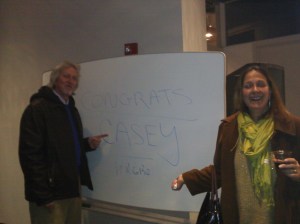 CONGRATS
CASEY